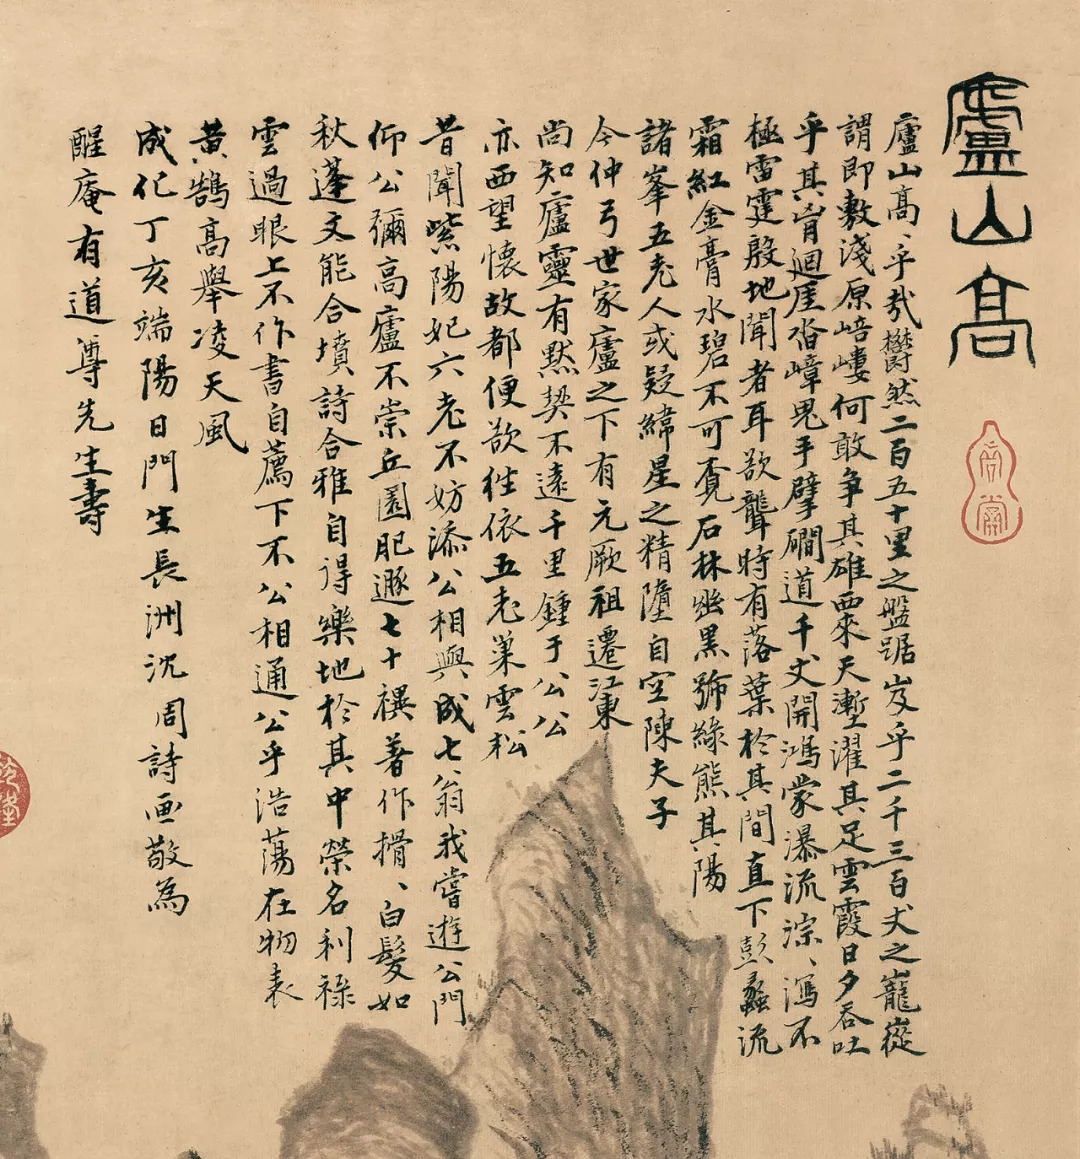 廬山高
廬山高、乎哉欝然二百五十里之盤踞岌乎二千三百丈之巃嵸
謂即敷淺原嵱嶁何敢争其雄西來天塹濯其足雲霞日夕吞吐
乎其胷迴厓沓嶂鬼手擘磵道千丈開鴻蒙瀑流淙、瀉不
極雷霆殷地聞者耳欲聾時有落葉於其間直下彭蠡流
霜紅金膏水碧不可覔石林幽黑號綠熊其陽
諸峯五老人或疑緯星之精墮自空陳夫子
今仲弓世家廬之下有元厥祖遷江東
尚知廬靈有默契不遠千里鍾于公公
亦西望懷故都便欲往依五老巢雲松
昔聞紫陽妃六老不妨添公相與成七翁我嘗遊公門
仰公彌高廬不崇丘園肥遯七十禩著作搰、白髮如
秋蓬文能合墳詩合雅自得樂地於其中榮名利祿
雲過眼上不作書自薦下不公相通公乎浩蕩在物表
黄鵠高舉凌天風
成化丁亥端陽日門生長洲沈周詩画敬為
醒庵有道尊先生壽
乾隆